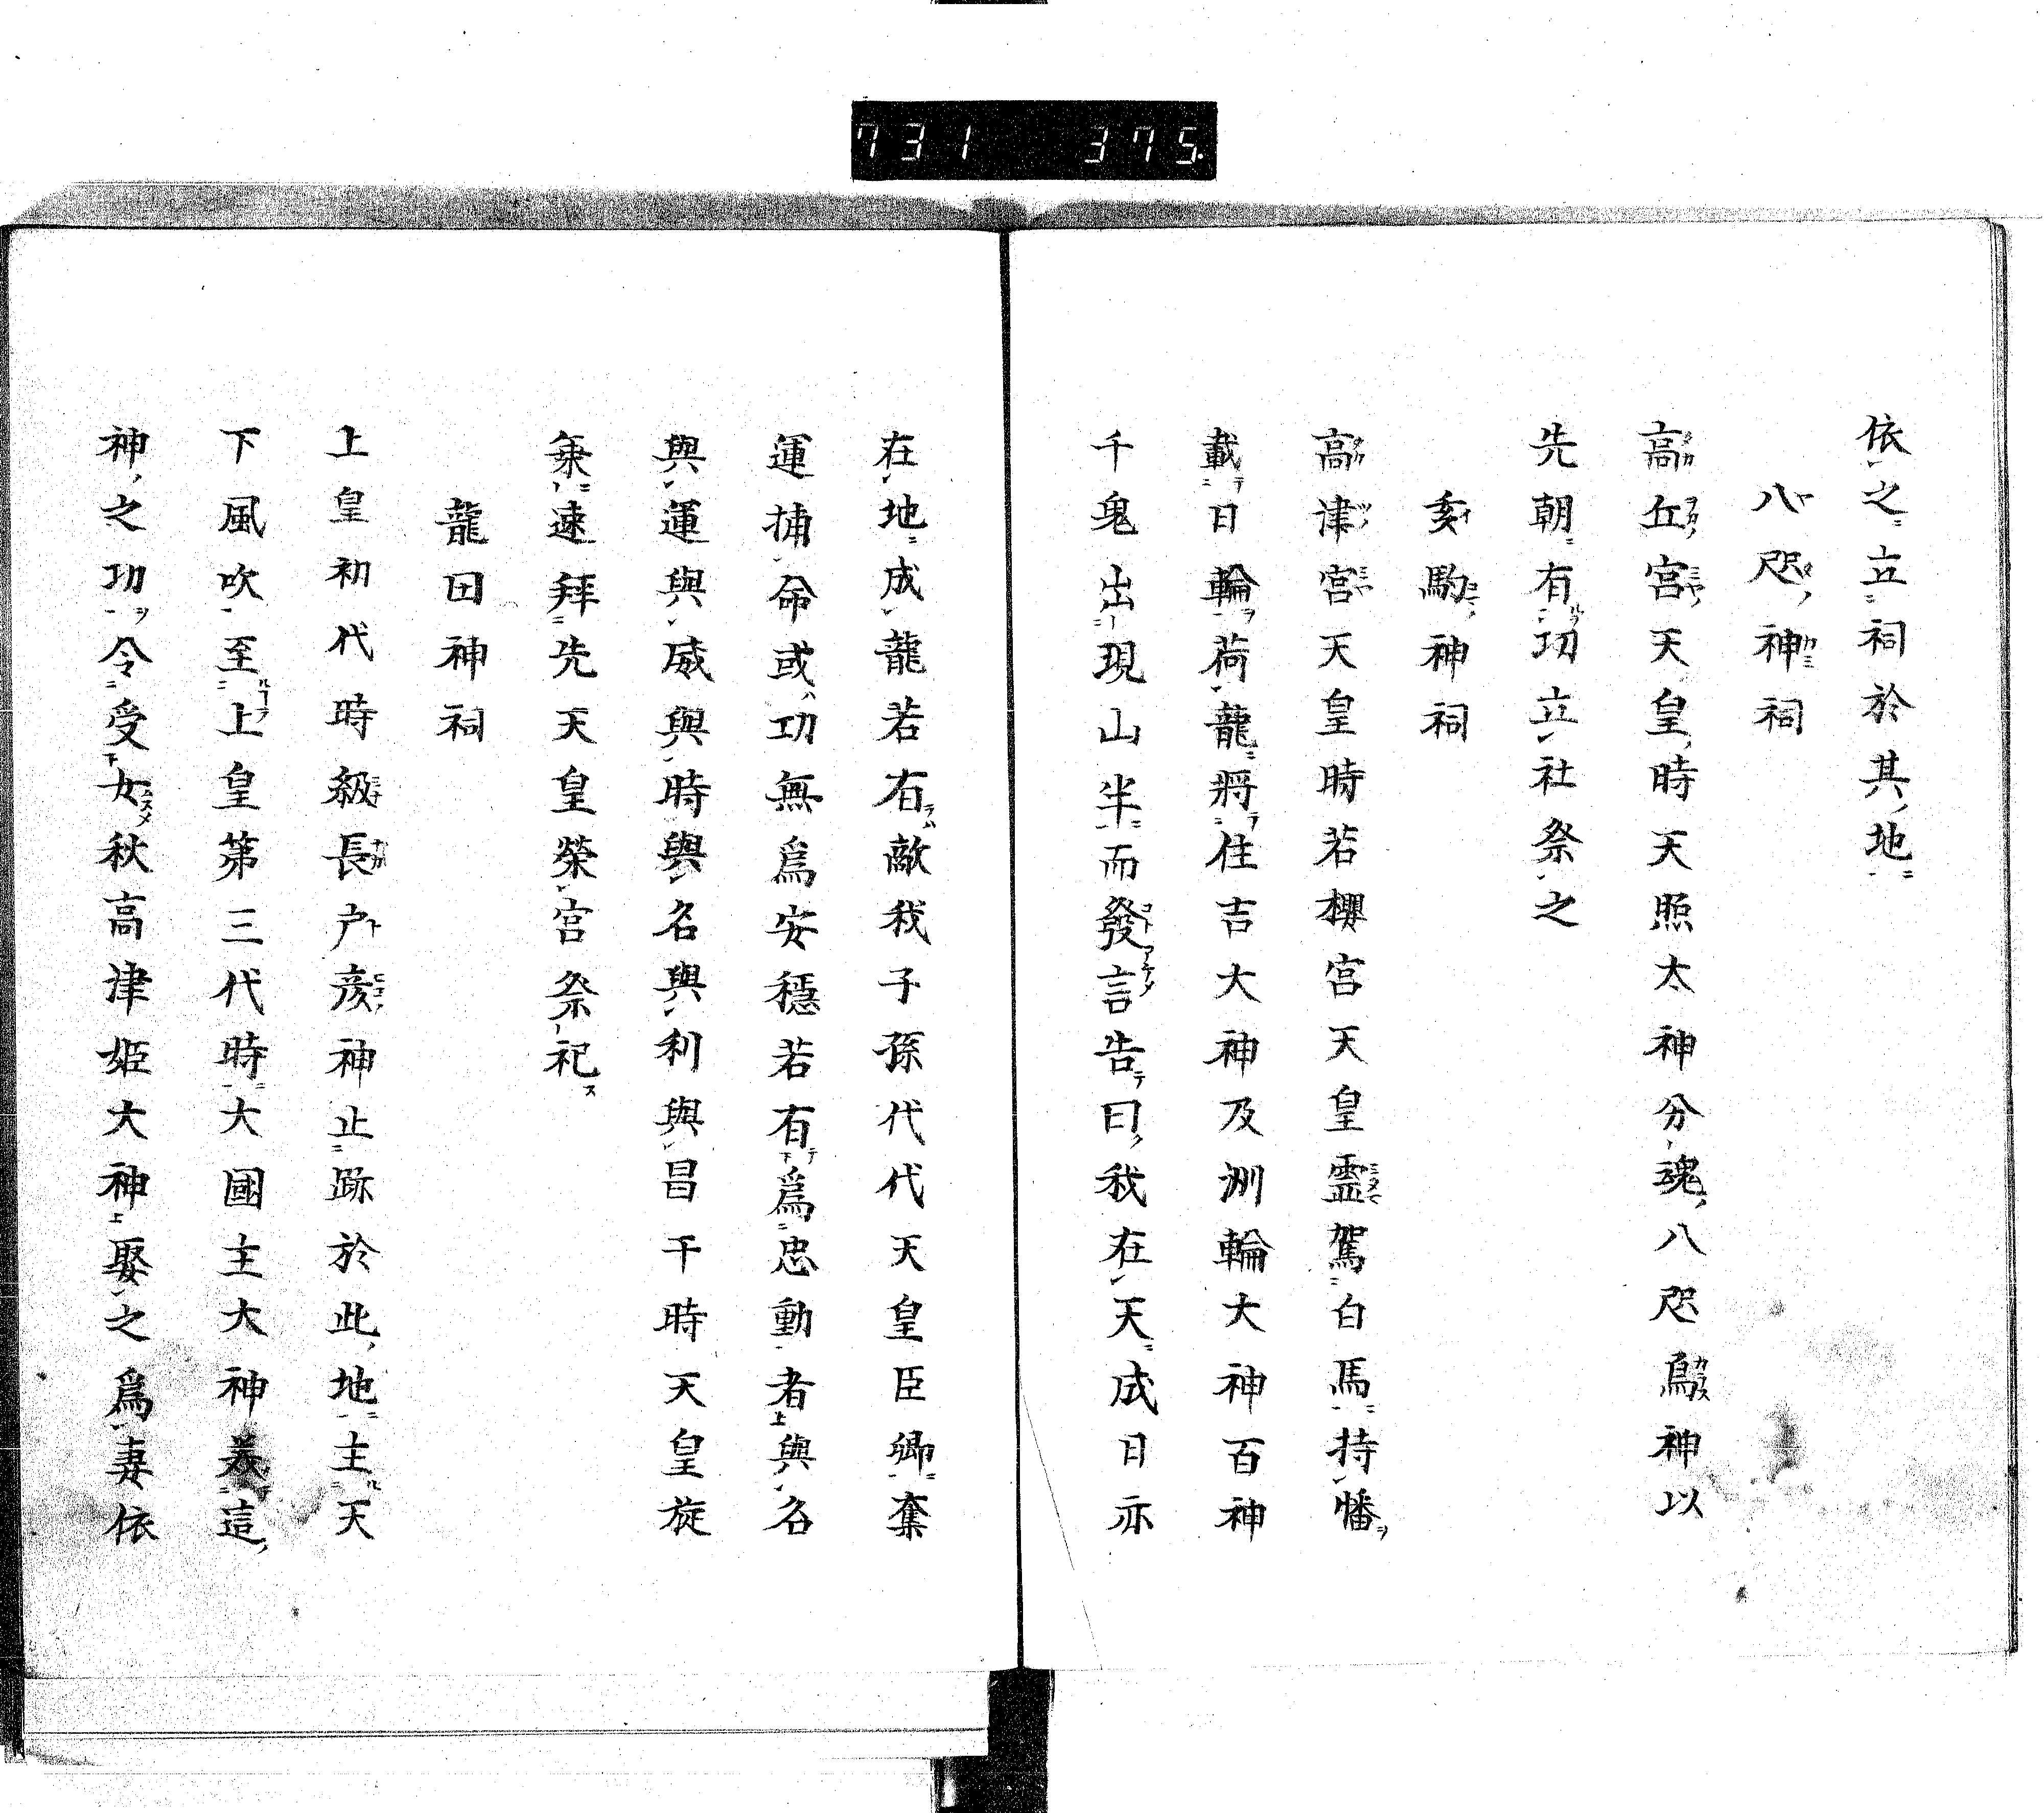 731 375
依之立祠於其地
八咫神祠
高丘宮天皇時天照太神分魂八咫烏神以
先朝有功立社祭之
亥駒神祠
高津宮天皇時若櫻宮天皇霊駕白馬持幡
載日輪荷龍將住吉大神及洲輪大神百神
千鬼出現山半而發言告曰我在天成日亦
在地成龍若有敵我子孫代代天皇臣卿奪
運捕命或功無為安穏若有為忠動者與名
與運與威與時與名與利與昌于時天皇旋
乗速拜先天皇榮宮祭祀
龍田神祠
上皇初代時級長戸彦神止跡於此地主天
下風吹至上皇第三代時大國主大神美這
神之功令受女秋高津姫大神娶之為妻依